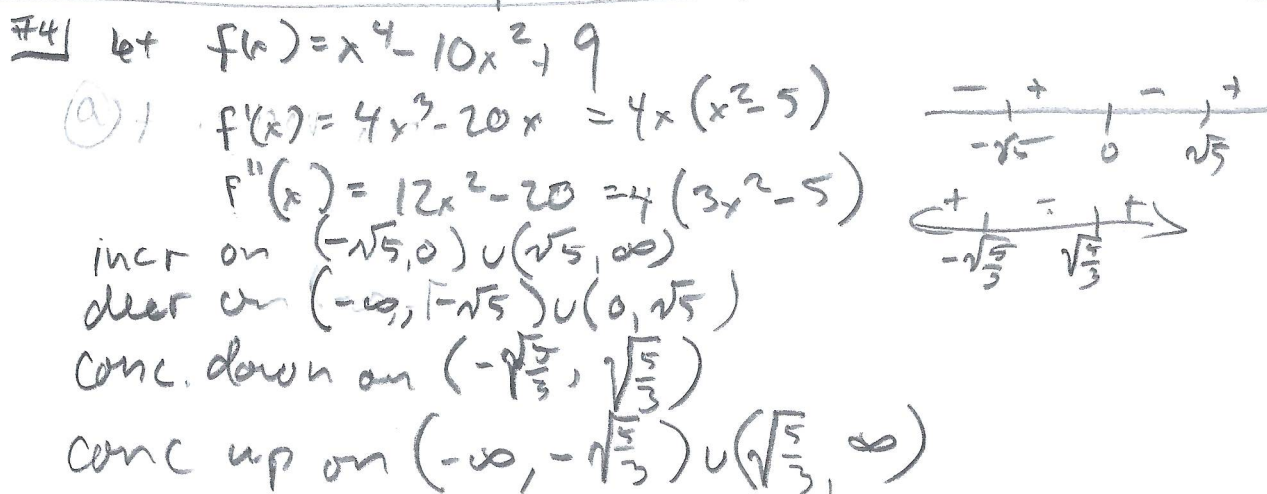 #4| let f(x) = x⁴ - 10x² + 9
(a) f'(x) = 4x³ - 20x = 4x (x² - 5)
- + - +
-√5 0 √5
f''(x) = 12x² - 20 = 4 (3x² - 5)
+ - +
-√(5/3) √(5/3)
incr on (-√5, 0) ∪ (√5, ∞)
decr on (-∞, -√5) ∪ (0, √5)
conc. down on (-√(5/3), √(5/3))
conc up on (-∞, -√(5/3)) ∪ (√(5/3), ∞)